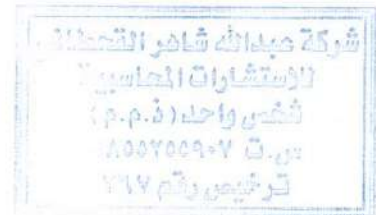 شركة عبدالله شاهر القحطاني
للاستشارات المحاسبية
شخص واحد (ذ.م.م)
س.ت ٨٥٥٧٥٥٩٠٧
ترخيص رقم ٧٦٧